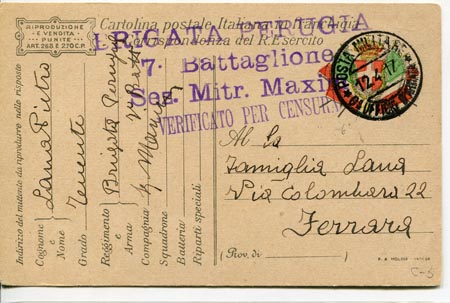 RIPRODUZIONE
E VENDITA
PUNITE
ART. 268 E 270 C.P.
Cartolina postale Italiana in franchigia
Corrispondenza del R. Esercito
BRIGATA PERUGIA
7° Battaglione
Sez. Mitr. Maxim
VERIFICATO PER CENSURA
POSTA MILITARE
Al la
Famiglia Lana
Via Colombara 22
Ferrara
(Prov. di )
Indirizzo del mittente da riprodurre nella risposta
Cognome e Nome Lana Pietro
Grado Tenente
Reggimento e Arma Brigata Perugia
Compagnia
Squadrone
Batteria
Riparti speciali
C-5